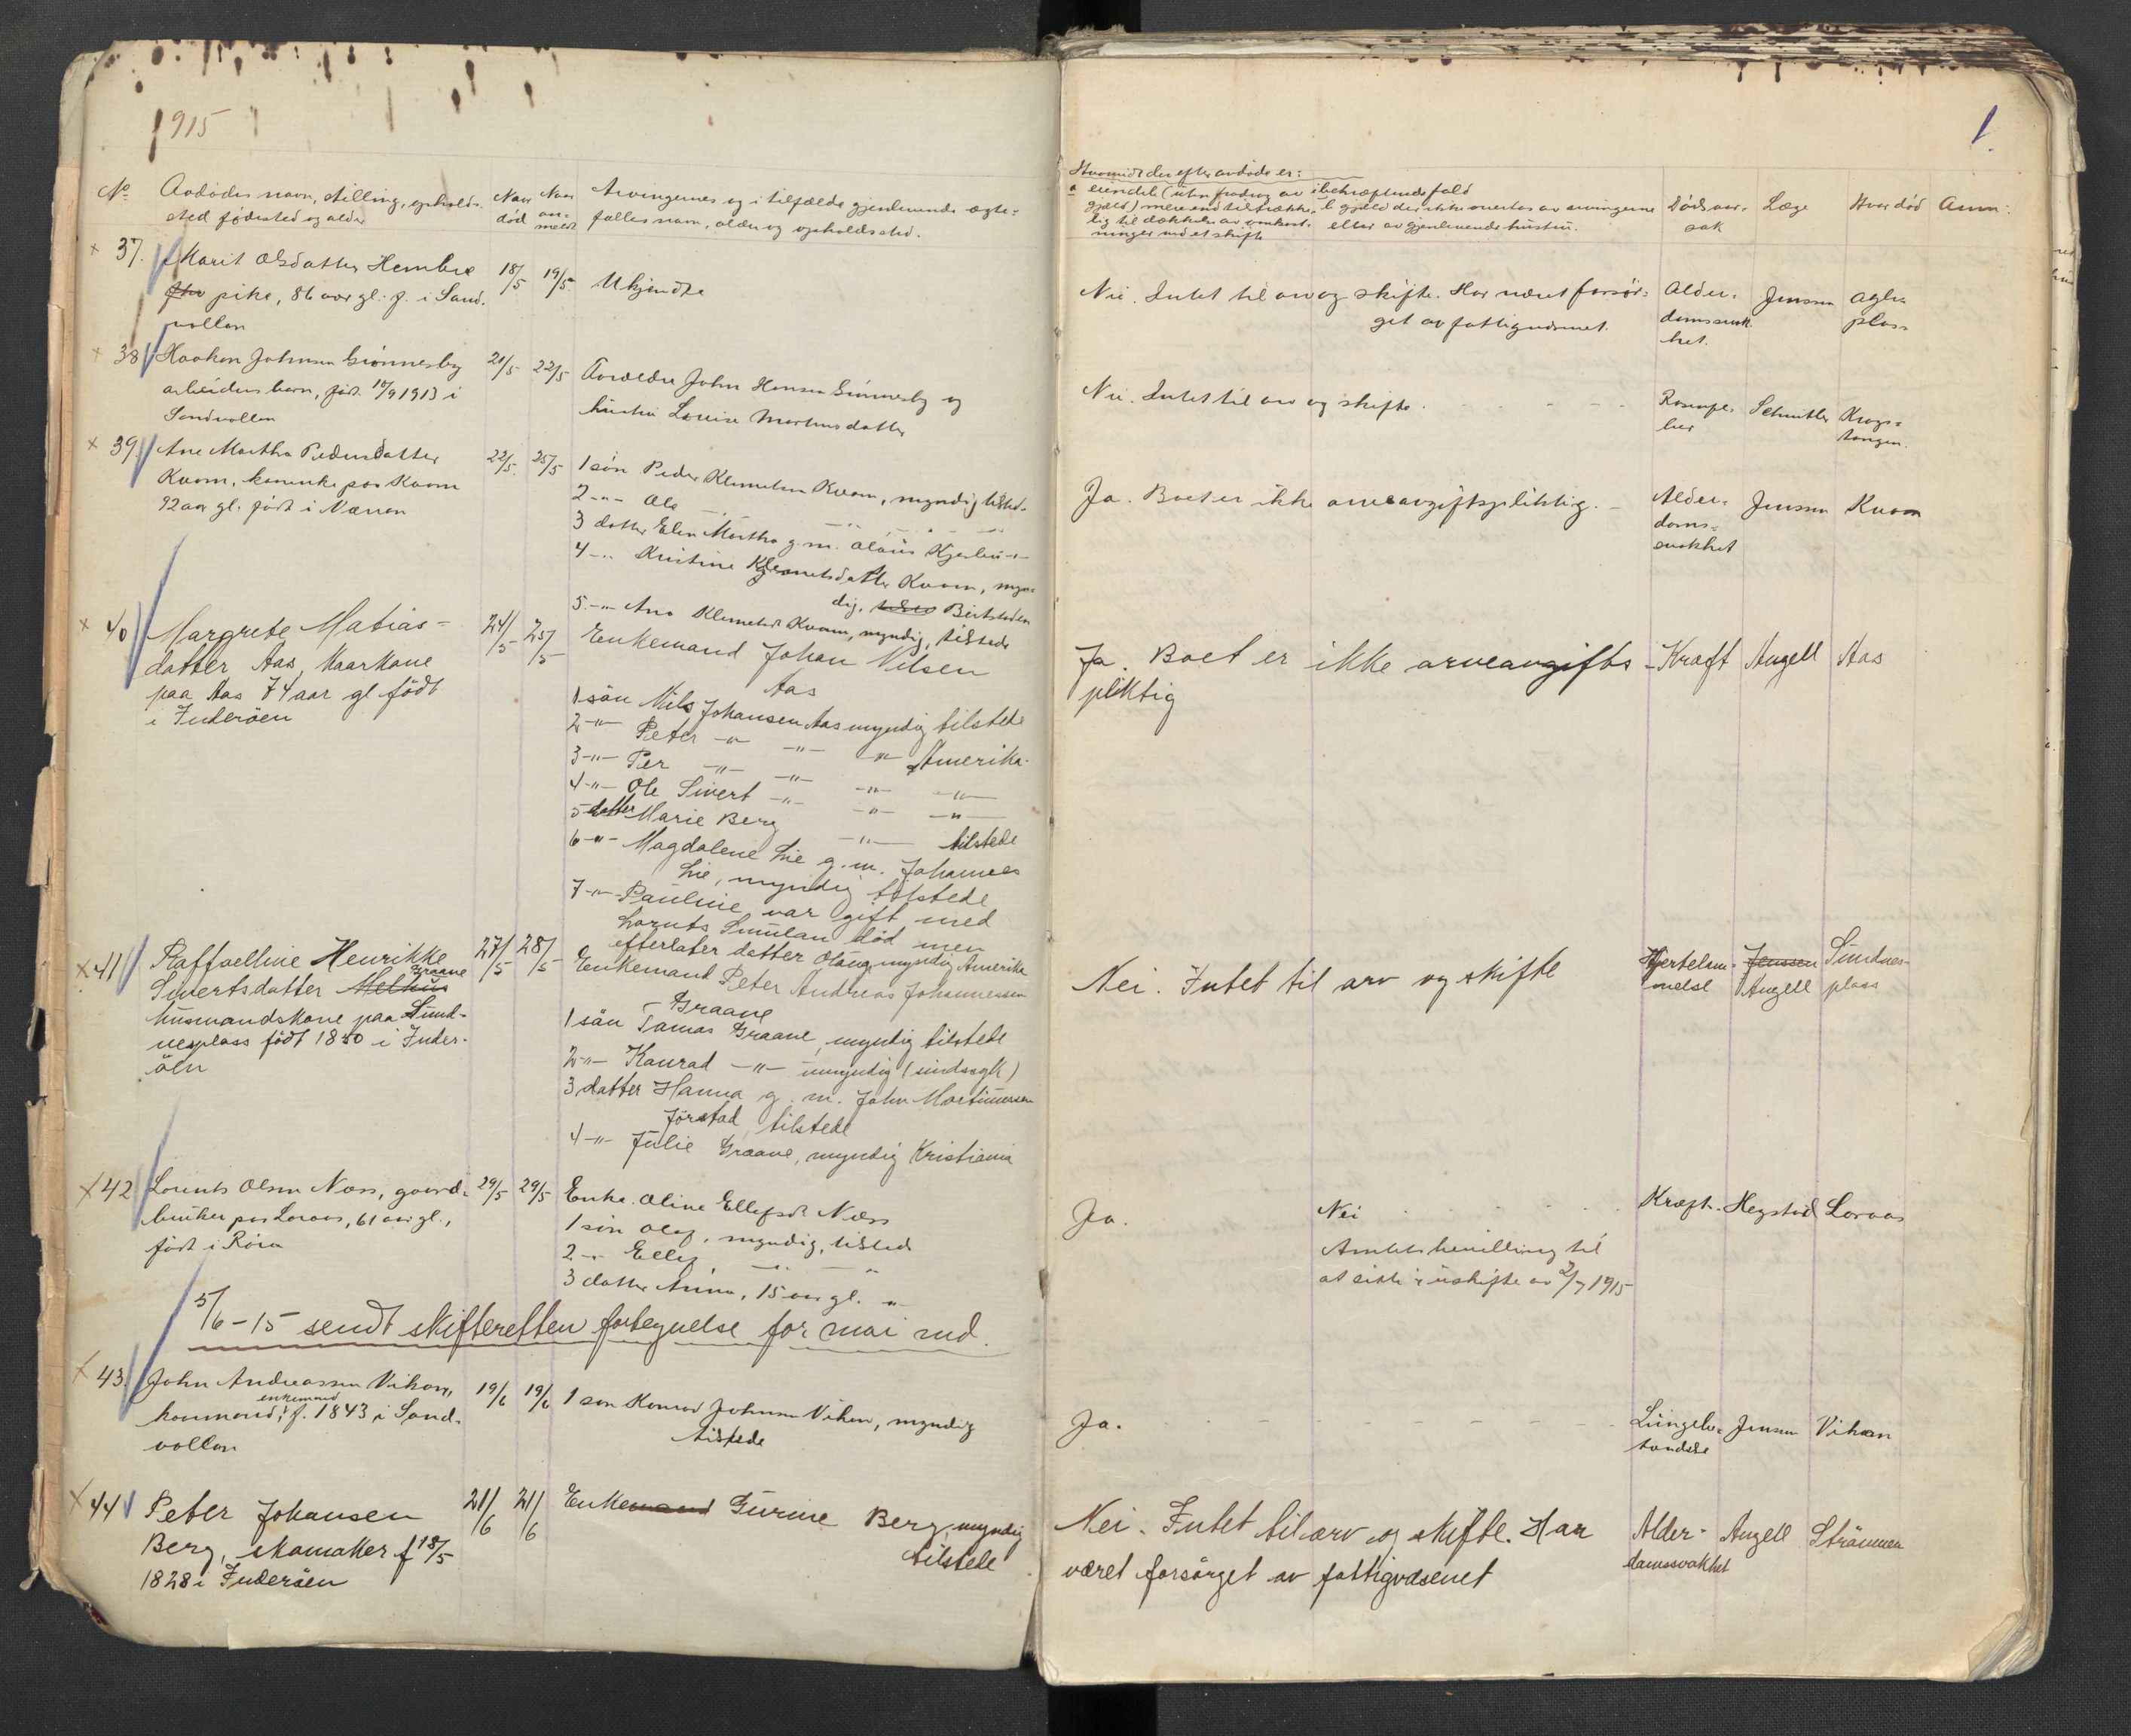 1915
1.
No. Avdødes navn, stilling, opholds-
sted fødested og alder
Naar
død
Naar
an-
meldt
Arvingernes og i tilfælde gjenlevende ægte-
fælles navn, alder og opholdssted.
Hvorvidt der efter avdøde er:
a eiendele (uten fradrag av
gjæld) mere end tilstrække-
lig til dækkelse av omkost-
ninger ved et skifte
i bekræftende fald
b gjæld der ikke overtas av arvingerne
eller av gjenlevende hustru.
Dødsaar-
sak
Læge
Hvor død
Anm:
37. Marit Olsdatter Hembre
pike, 86 aar gl. f. i Sand-
vollan
18/5 19/5 Ukjendte
Nei. Intet til arv og skifte. Har været forsør-
get av fattigvæsenet.
Alder-
domssvak-
het.
Jenssen
Aglen
plass
38 Haakon Johnsen Grønnesby
arbeiders barn, født 10/9 1913 i
Sandvollan
21/5 22/5 Forældre John Hansen Grønnesby og
hustru Louise Martinusdatter
Nei. Intet til arv og skifte.
Schnitler
Krogs-
tangen.
39 Ane Martha Pedersdatter
Kvam, kaarenke paa Kvam
92 aar gl. født i Værran
22/5. 25/5 1 søn Peder Klemetsen Kvam, myndig tilsted.
2 -"- Ole -"- -"- -"-
3 datter Elen Martha g. m. Olaus Kjerbu -"-
4 -"- Kristine Klemetsdatter Kvam, myn-
dig, Beitstaden
5 -"- Ane Klemetsdt Kvam, myndig, tilstede
Ja. Boet er ikke arveavgiftspliktig.
Alder-
doms-
svakhet
Jenssen
Kvam
40 Margrete Matias-
datter Aas, kaarkone
paa Aas 74 aar gl født
i Inderöen
24/5 25/5 Enkemand Johan Nilsen
Aas
1 sön Nils Johansen Aas myndig tilstede
2 -"- Peter -"- -"- -"- Amerika
3 -"- Per -"- -"-
4 -"- Ole Sivert -"- -"- -"-
5 datter Marie Berg -"- -"-
6 -"- Magdalene Lie g. m. Johannes -"- tilstede
Lie, myndig tilstede
7 -"- Pauline var gift med
Lornts Smulan död men
efterlater datter Olaug, myndig Amerika
Ja. Boet er ikke arveavgifts-
pliktig
Kræft
Angell
Aas
41 Raffaelline Henrikke
Sivertsdatter Melhus Graane
husmandskone paa Sund-
nesplass født 1850 i Inder-
öen
27/5 28/5 Enkemand Peter Andreas Johannessen
Graane
1 sön Tomas Graane, myndig tilstede
2 -"- Konrad -"- umyndig (sindssyk)
3 datter Hanna g. m. John Martinussen
Jörstad tilstede
4 -"- Julie Graane, myndig Kristiania
Nei. Intet til arv og skifte
Hjertelam-
melse
Jenssen
Angell
Sundnes-
plass
42 Lorents Olsen Næss, gaard-
bruker paa Loraas, 61 aar gl.,
født i Röra
29/5 29/5 Enke Oline Ellefsdt. Næss
1 søn Olaf, myndig, tilstede
2 -"- Ellef -"- -"-
3 datter Anna, 15 aar gl. -"-
Ja.
Nei
Amtets bevilling til
at sitte i uskifte av 2/7 1915
Kræft.
Hegstad
Loraas
5/6-15 sendt skifteretten fortegnelse for mai md.
43. John Andreassen Vikan,
kaarmand, enkemand, f. 1843 i Sand-
vollan
19/6 19/6 1 søn Konrad Johnsen Vikan, myndig
tilstede
Ja.
Lungebe-
tændelse
Jenssen
Vikan
44 Peter Johansen
Berg, skomaker f 18/5
1828 i Inderöen
21/6 21/6 Enkemand Gurine Berg, myndig
tilstede
Nei. Intet til arv og skifte. Har
været forsörget av fattigvæsenet
Alder-
domssvakhet
Angell
Strömmen